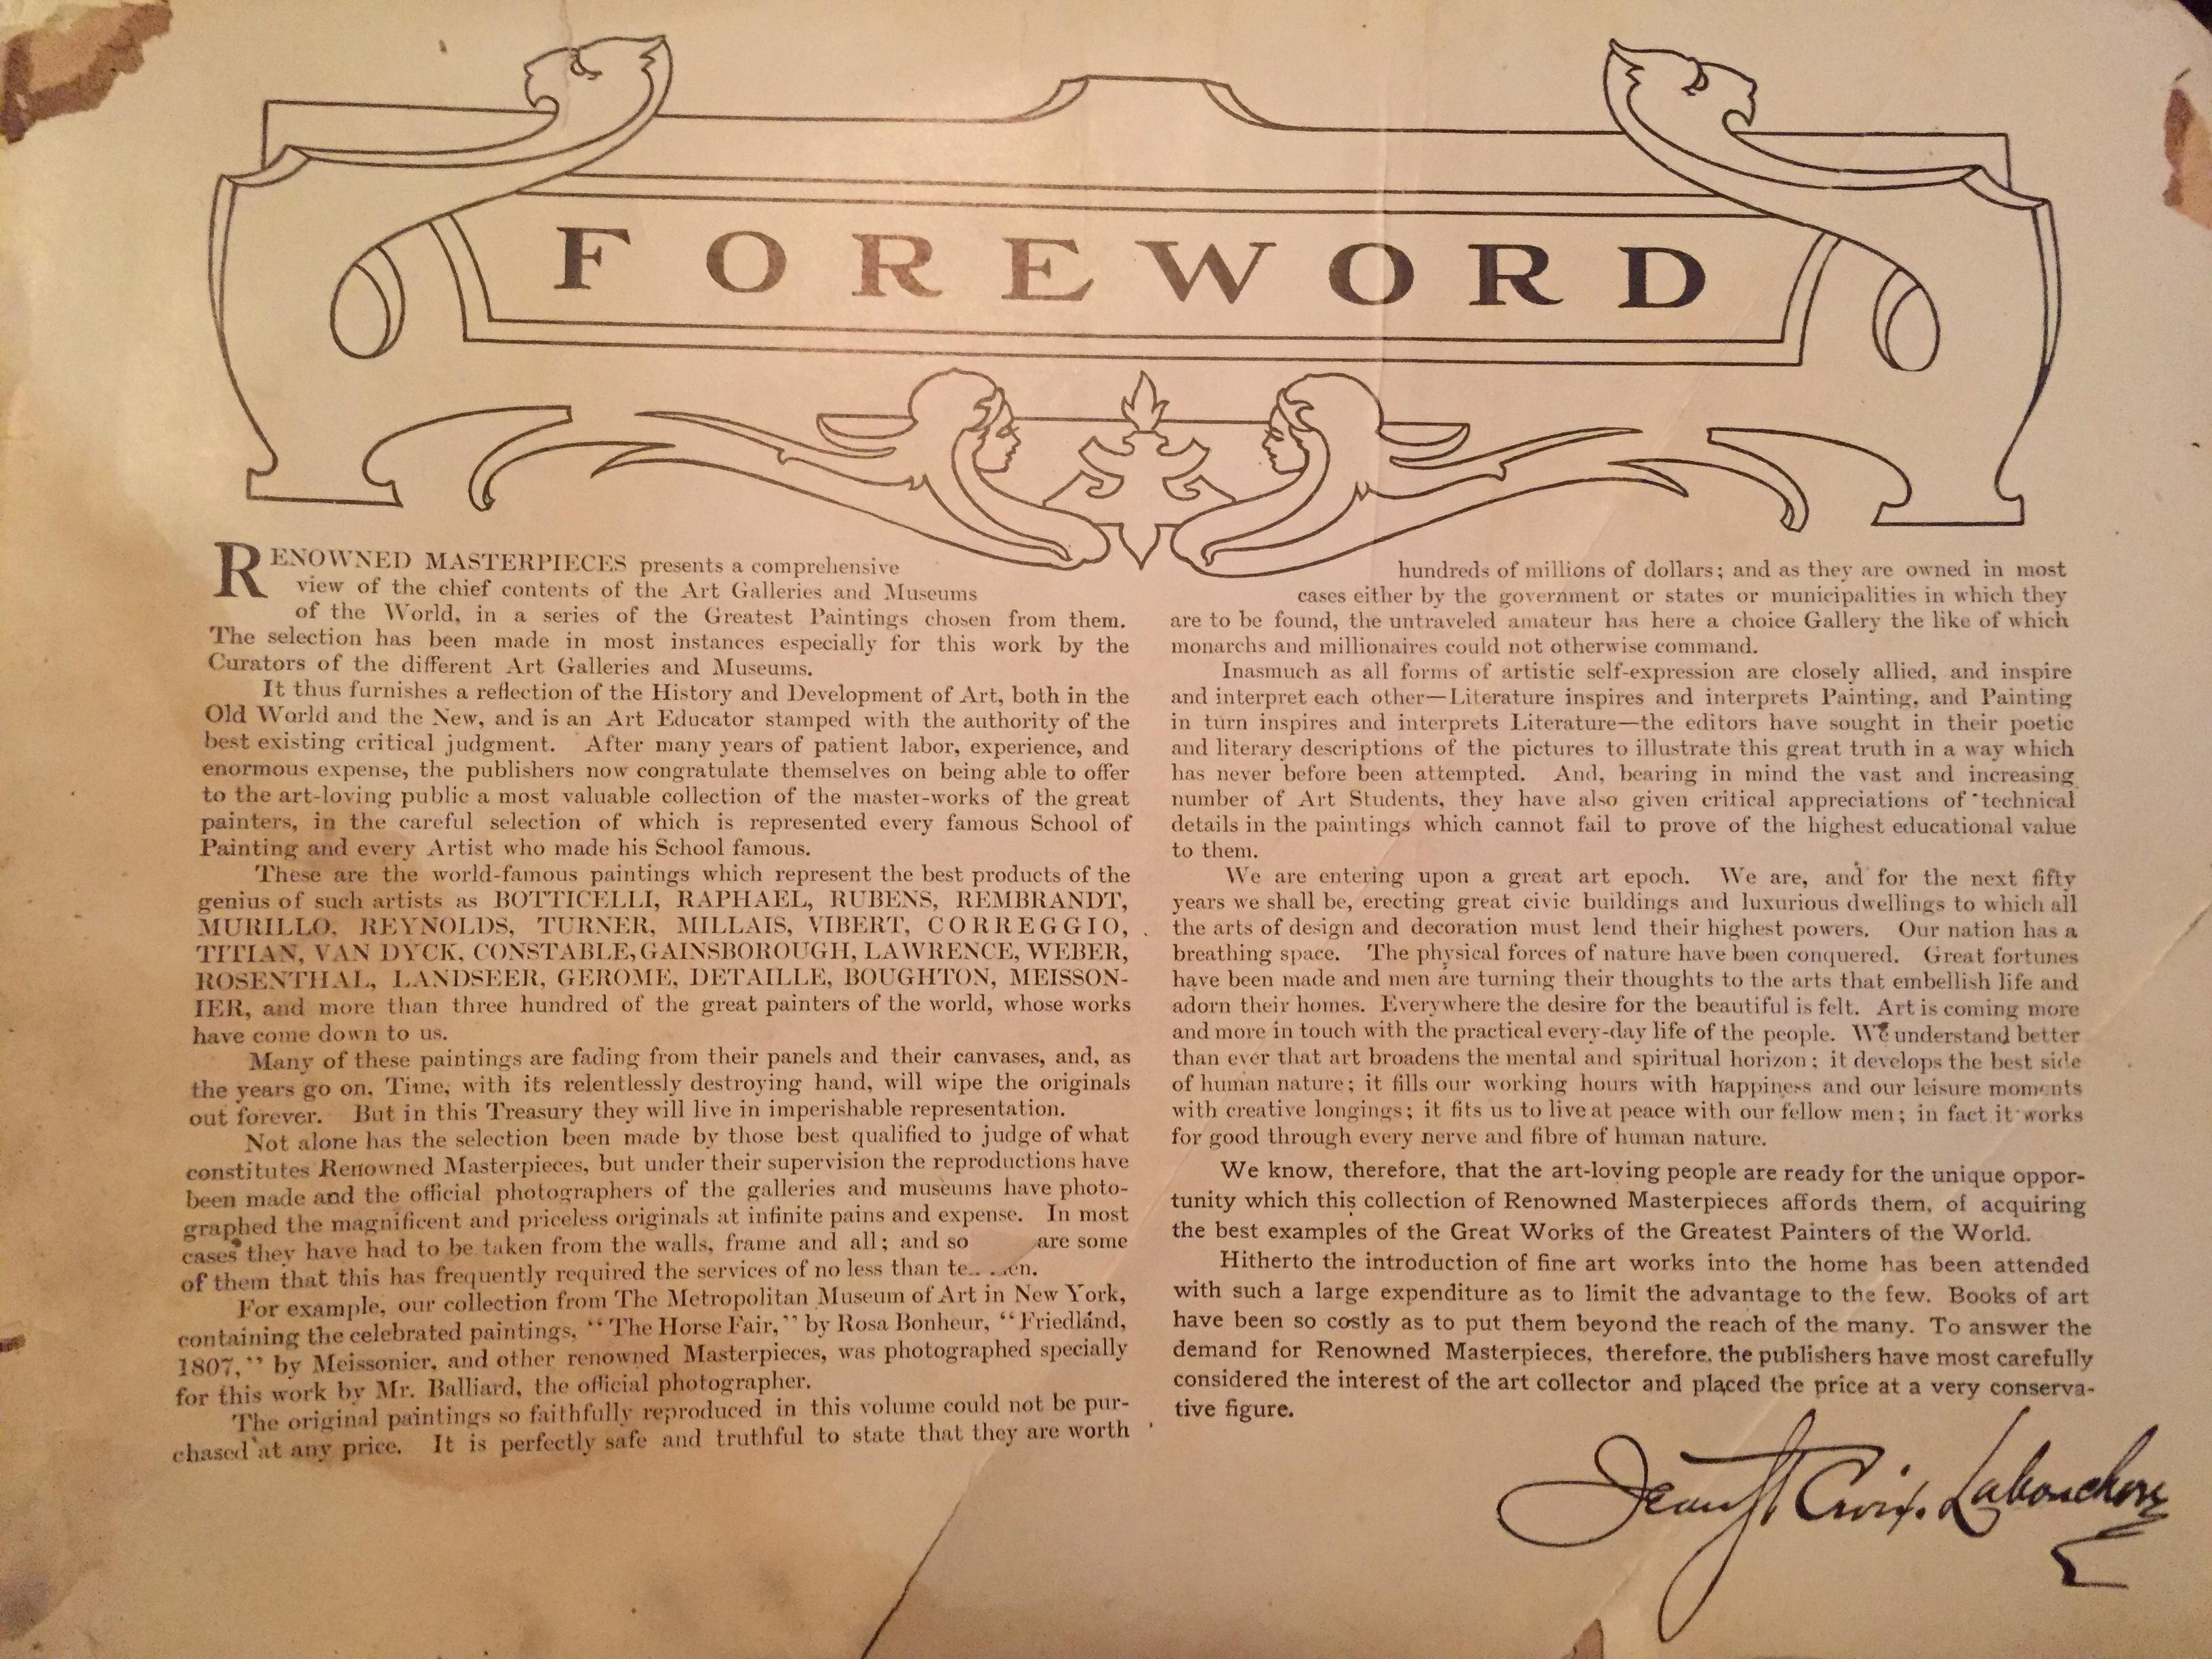 FOREWORD
RENOWNED MASTERPIECES presents a comprehensive
view of the chief contents of the Art Galleries and Museums
of the World, in a series of the Greatest Paintings chosen from them.
The selection has been made in most instances especially for this work by the
Curators of the different Art Galleries and Museums.
It thus furnishes a reflection of the History and Development of Art, both in the
Old World and the New, and is an Art Educator stamped with the authority of the
best existing critical judgment. After many years of patient labor, experience, and
enormous expense, the publishers now congratulate themselves on being able to offer
to the art-loving public a most valuable collection of the master-works of the great
painters, in the careful selection of which is represented every famous School of
Painting and every Artist who made his School famous.
These are the world-famous paintings which represent the best products of the
genius of such artists as BOTTICELLI, RAPHAEL, RUBENS, REMBRANDT,
MURILLO, REYNOLDS, TURNER, MILLAIS, VIBERT, CORREGGIO,
TITIAN, VAN DYCK, CONSTABLE, GAINSBOROUGH, LAWRENCE, WEBER,
ROSENTHAL, LANDSEER, GEROME, DETAILLE, BOUGHTON, MEISSON-
IER, and more than three hundred of the great painters of the world, whose works
have come down to us.
Many of these paintings are fading from their panels and their canvases, and, as
the years go on, Time, with its relentlessly destroying hand, will wipe the originals
out forever. But in this Treasury they will live in imperishable representation.
Not alone has the selection been made by those best qualified to judge of what
constitutes Renowned Masterpieces, but under their supervision the reproductions have
been made and the official photographers of the galleries and museums have photo-
graphed the magnificent and priceless originals at infinite pains and expense. In most
cases they have had to be taken from the walls, frame and all; and so are some
of them that this has frequently required the services of no less than
For example, our collection from The Metropolitan Museum of Art in New York,
containing the celebrated paintings, "The Horse Fair," by Rosa Bonheur, "Friedland,
1807," by Meissonier, and other renowned Masterpieces, was photographed specially
for this work by Mr. Balliard, the official photographer.
The original paintings so faithfully reproduced in this volume could not be pur-
chased at any price. It is perfectly safe and truthful to state that they are worth
hundreds of millions of dollars; and as they are owned in most
cases either by the government or states or municipalities in which they
are to be found, the untraveled amateur has here a choice Gallery the like of which
monarchs and millionaires could not otherwise command.
Inasmuch as all forms of artistic self-expression are closely allied, and inspire
and interpret each other—Literature inspires and interprets Painting, and Painting
in turn inspires and interprets Literature—the editors have sought in their poetic
and literary descriptions of the pictures to illustrate this great truth in a way which
has never before been attempted. And, bearing in mind the vast and increasing
number of Art Students, they have also given critical appreciations of technical
details in the paintings which cannot fail to prove of the highest educational value
to them.
We are entering upon a great art epoch. We are, and for the next fifty
years we shall be, erecting great civic buildings and luxurious dwellings to which all
the arts of design and decoration must lend their highest powers. Our nation has a
breathing space. The physical forces of nature have been conquered. Great fortunes
have been made and men are turning their thoughts to the arts that embellish life and
adorn their homes. Everywhere the desire for the beautiful is felt. Art is coming more
and more in touch with the practical every-day life of the people. We understand better
than ever that art broadens the mental and spiritual horizon; it develops the best side
of human nature; it fills our working hours with happiness and our leisure moments
with creative longings; it fits us to live at peace with our fellow men; in fact it works
for good through every nerve and fibre of human nature.
We know, therefore, that the art-loving people are ready for the unique oppor-
tunity which this collection of Renowned Masterpieces affords them, of acquiring
the best examples of the Great Works of the Greatest Painters of the World.
Hitherto the introduction of fine art works into the home has been attended
with such a large expenditure as to limit the advantage to the few. Books of art
have been so costly as to put them beyond the reach of the many. To answer the
demand for Renowned Masterpieces, therefore, the publishers have most carefully
considered the interest of the art collector and placed the price at a very conserva-
tive figure.
Jean St Croix. Labouchere